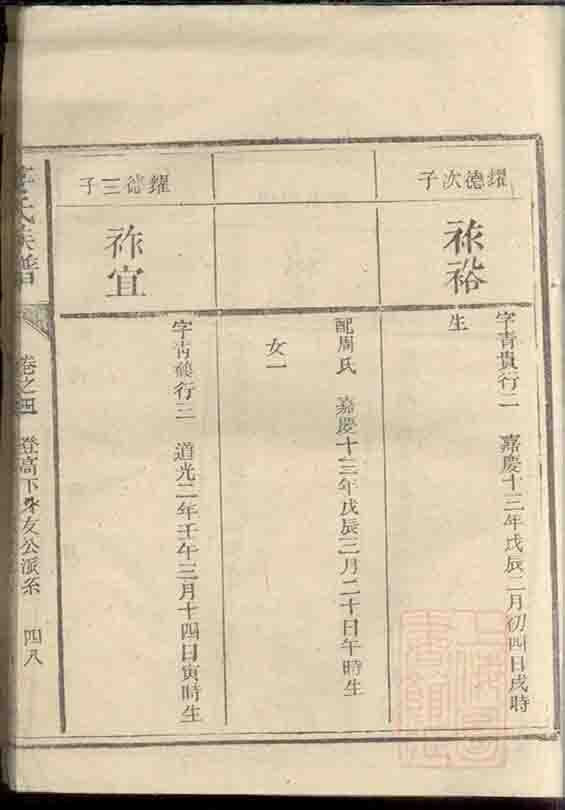 耀德次子
祚裕
字青貴行二　嘉慶十三年戊辰二月初四日戌時
生
配周氏　嘉慶十三年戊辰三月二十日午時生
女一
耀德三子
祚宜
字青　行三　道光二年壬午三月十四日寅時生
氏族譜
卷之四　登高下　友公派系　四八
上海圖書館藏